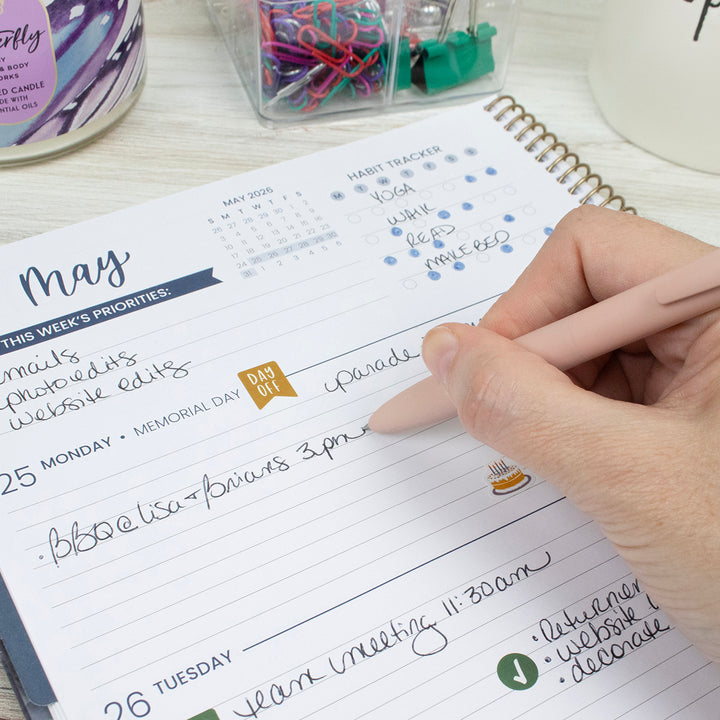 BODY
CANDLE
MAY 2026
S M T W T F S
26 27 28 29 30 1 2
3 4 5 6 7 8 9
10 11 12 13 14 15 16
17 18 19 20 21 22 23
24 25 26 27 28 29 30
31 1 2 3 4 5 6
HABIT TRACKER
M T W T F S S
YOGA
WALK
READ
MAKE BED
May
THIS WEEK'S PRIORITIES:
photo edits
website edits
25 MONDAY • MEMORIAL DAY
DAY OFF
parade
• BBQ @ lisa + brians 3pm
26 TUESDAY
team meeting 11:30am
• website
• decorate